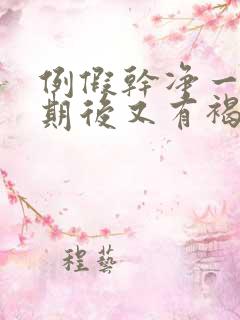 例假幹净一
期後又有褐
程藝